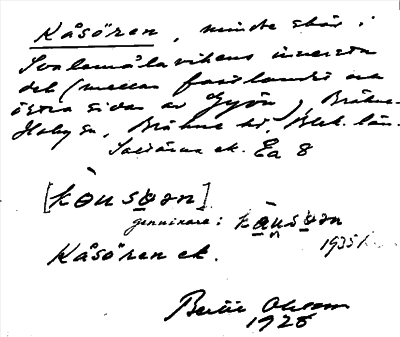 Kåsören, mindre skär i
Svalemålavikens innersta
del (mellan fastlandet och
östra sidan av Gyön), Bräkne-
Hoby sn, Bräkne hd, Blek. län.
ek. Ea 8
[kǝusøǝn]
genuinare: kausøǝn
1935
Kåsören ek.
Bertil Ohlsson
1928